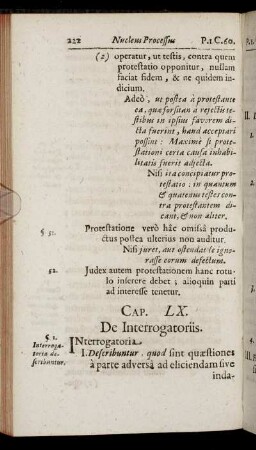 222 Nucleus Processus P.1 C.60.
(2) operatur, ut testis, contra quem
protestatio opponitur, nullam
faciat fidem, & ne quidem in-
dicium.
Adeò, ut postea à protestante
ea, quæ forsitan à rejectis te-
stibus in ipsius favorem di-
cta fuerint, haud acceptari
possint: Maximè si prote-
stationi certa causa inhabi-
litatis fuerit adjecta.
Nisi ita concipiatur pro-
testatio: in quantum
& quatenus testes con-
tra protestantem di-
cant, & non aliter.
§. 51. Protestatione verò hâc omissâ produ-
ctus postea ulterius non auditur.
Nisi juret, aut ostendat se igno-
rasse eorum defectum.
52. Judex autem protestationem hanc rotu-
lo inserere debet; alioquin parti
ad interesse tenetur.
CAP. LX.
De Interrogatoriis.
§. 1.
Interroga-
toria de-
scribuntur.
INterrogatoria
1. Describuntur, quod sint quæstiones
à parte adversâ ad eliciendam sive
inda-